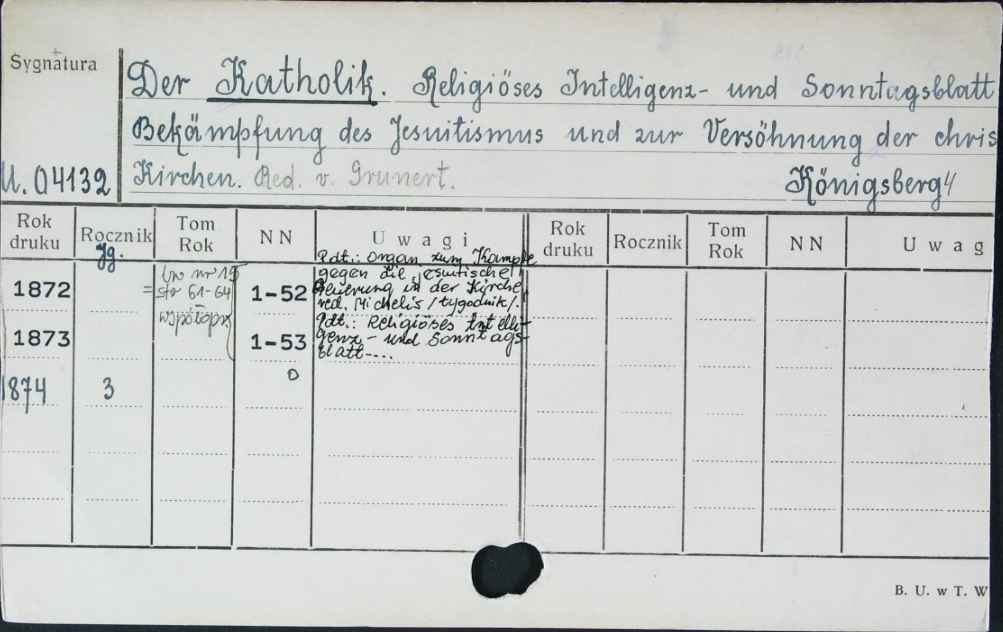 Sygnatura
Der Katholik. Religiöses Intelligenz- und Sonntagsblatt
Bekämpfung des Jesuitismus und zur Versöhnung der chris
U. 04132
Kirchen. Red. v. Grunert. Königsberg
Rok druku Rocznik Tom Rok NN Uwagi Rok druku Rocznik Tom Rok NN Uwag
Jg.
Pdt.: Organ zum Kampfe
gegen die jesuitische
Neuerung in der Kirche
red. Michelis /tygodnik/.
1872 nr 19 str 61-64 1-52
Pdt.: Religiöses Intelli-
genz- und Sonntags-
blatt-...
1873 1-53
1874 3 0
B. U. w T. W